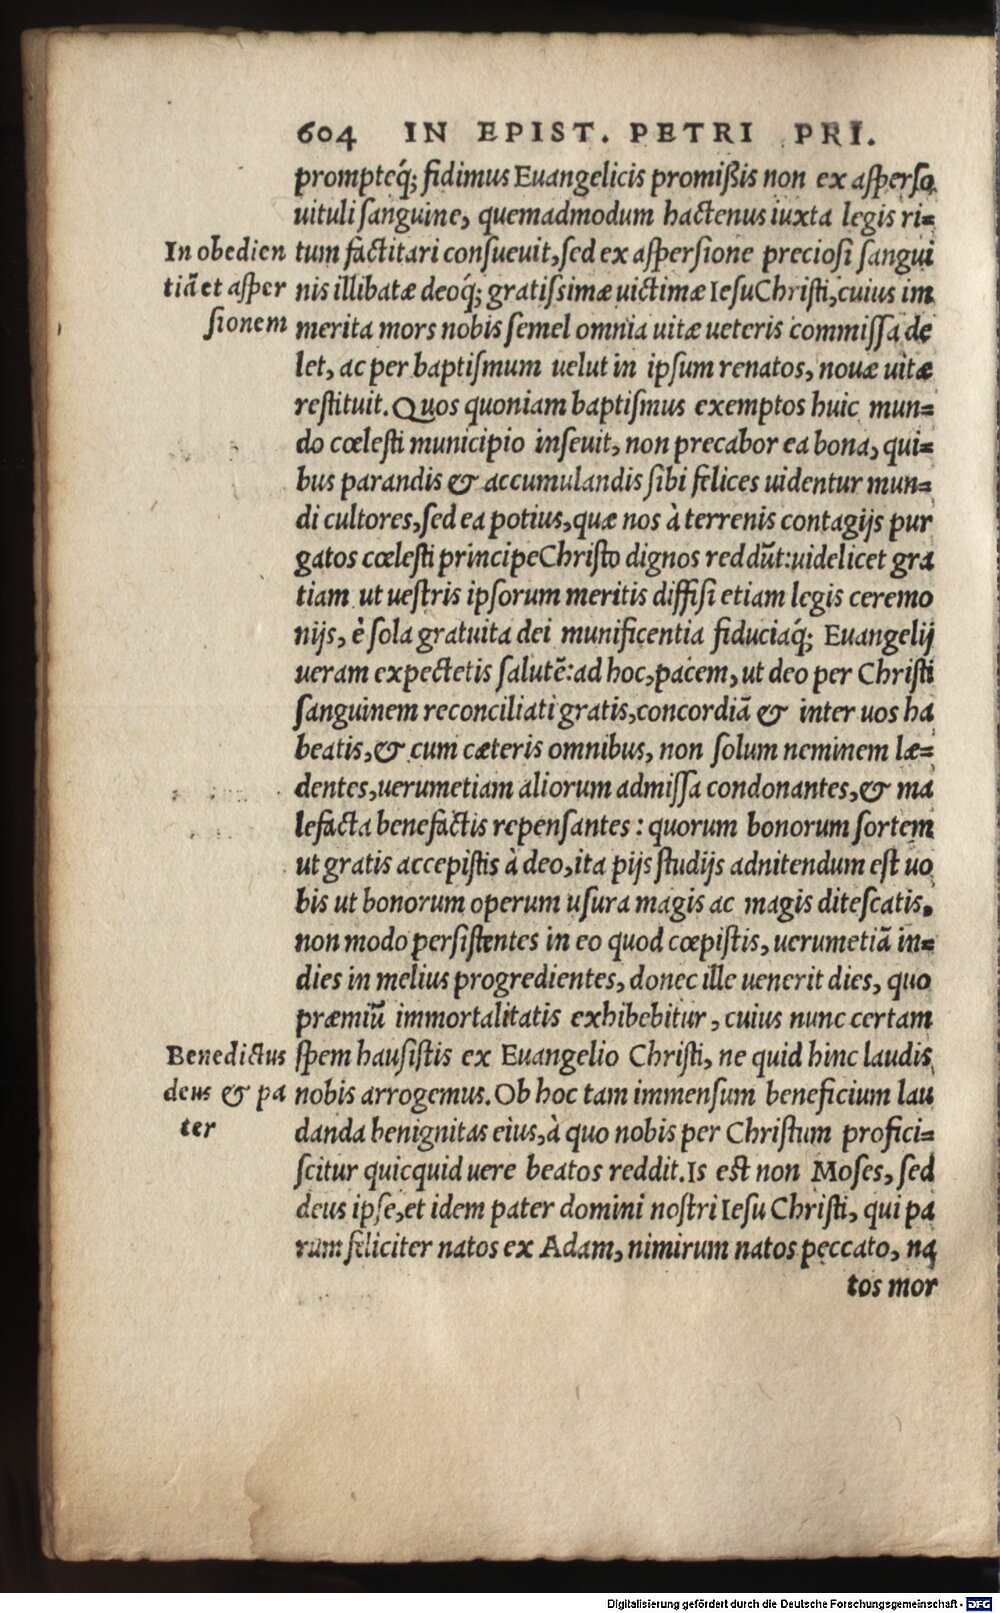 604 IN EPIST. PETRI PRI.
prompteq́; fidimus Euangelicis promißis non ex asperso
uituli sanguine, quemadmodum hactenus iuxta legis ri=
In obedien tum factitari consueuit, sed ex aspersione preciosi sangui
tiā et asper nis illibatæ deoq́; gratissimæ uictimæ Iesu Christi, cuius im
sionem merita mors nobis semel omnia uitæ ueteris commissa de
let, ac per baptismum uelut in ipsum renatos, nouæ uitæ
restituit. Quos quoniam baptismus exemptos huic mun=
do cœlesti municipio inseuit, non precabor ea bona, qui=
bus parandis & accumulandis sibi felices uidentur mun=
di cultores, sed ea potius, quæ nos à terrenis contagijs pur
gatos cœlesti principe Christo dignos reddūt: uidelicet gra
tiam ut uestris ipsorum meritis diffisi etiam legis ceremo
nijs, è sola gratuita dei munificentia fiduciaq́; Euangelij
ueram expectetis salutē: ad hoc, pacem, ut deo per Christi
sanguinem reconciliati gratis, concordiā & inter uos ha
beatis, & cum cæteris omnibus, non solum neminem læ=
dentes, uerumetiam aliorum admissa condonantes, & ma
lefacta benefactis repensantes: quorum bonorum sortem
ut gratis accepistis à deo, ita pijs studijs adnitendum est uo
bis ut bonorum operum usura magis ac magis ditescatis.
non modo persistentes in eo quod cœpistis, uerumetiā in=
dies in melius progredientes, donec ille uenerit dies, quo
præmiū immortalitatis exhibebitur, cuius nunc certam
Benedictus spem hausistis ex Euangelio Christi, ne quid hinc laudis
deus & pa nobis arrogemus. Ob hoc tam immensum beneficium lau
ter danda benignitas eius, à quo nobis per Christum profici=
scitur quicquid uere beatos reddit. Is est non Moses, sed
deus ipse, et idem pater domini nostri Iesu Christi, qui pa
rum feliciter natos ex Adam, nimirum natos peccato, na
tos mor
Digitalisierung gefördert durch die Deutsche Forschungsgemeinschaft - DFG